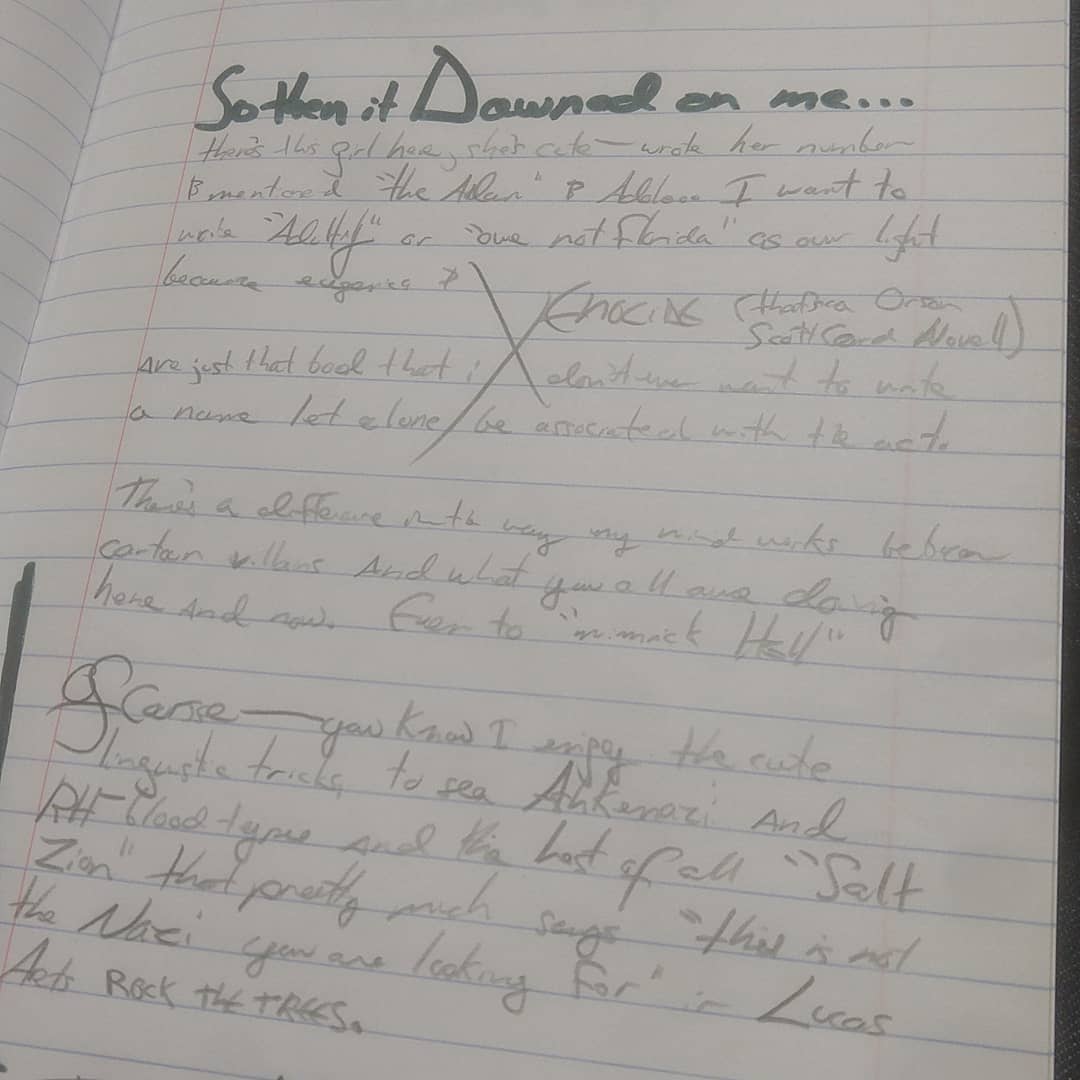 So then it Dawned on me...
there's this girl here, she's cute — wrote her number
mentored "the Adan" I want to
write or "owe not florida" as our light
because
Xenocide (thats a Orson
Scott Card Novel)
Are just that bad that i don't even want to write
a name let alone be associated with the act.
There's a difference in the way my mind works between
certain villans And what you all are doing
here And now. Even to "mimmick Hell"
Of Carse — you know I enjoy the cute
lingustic tricks, to sea Ahkenazi And
RH- blood types And the best of all "Salt
Zion" that pretty much says "this is not
the Nazi you are looking for" in Lucas
Acts ROCK THE TREES.